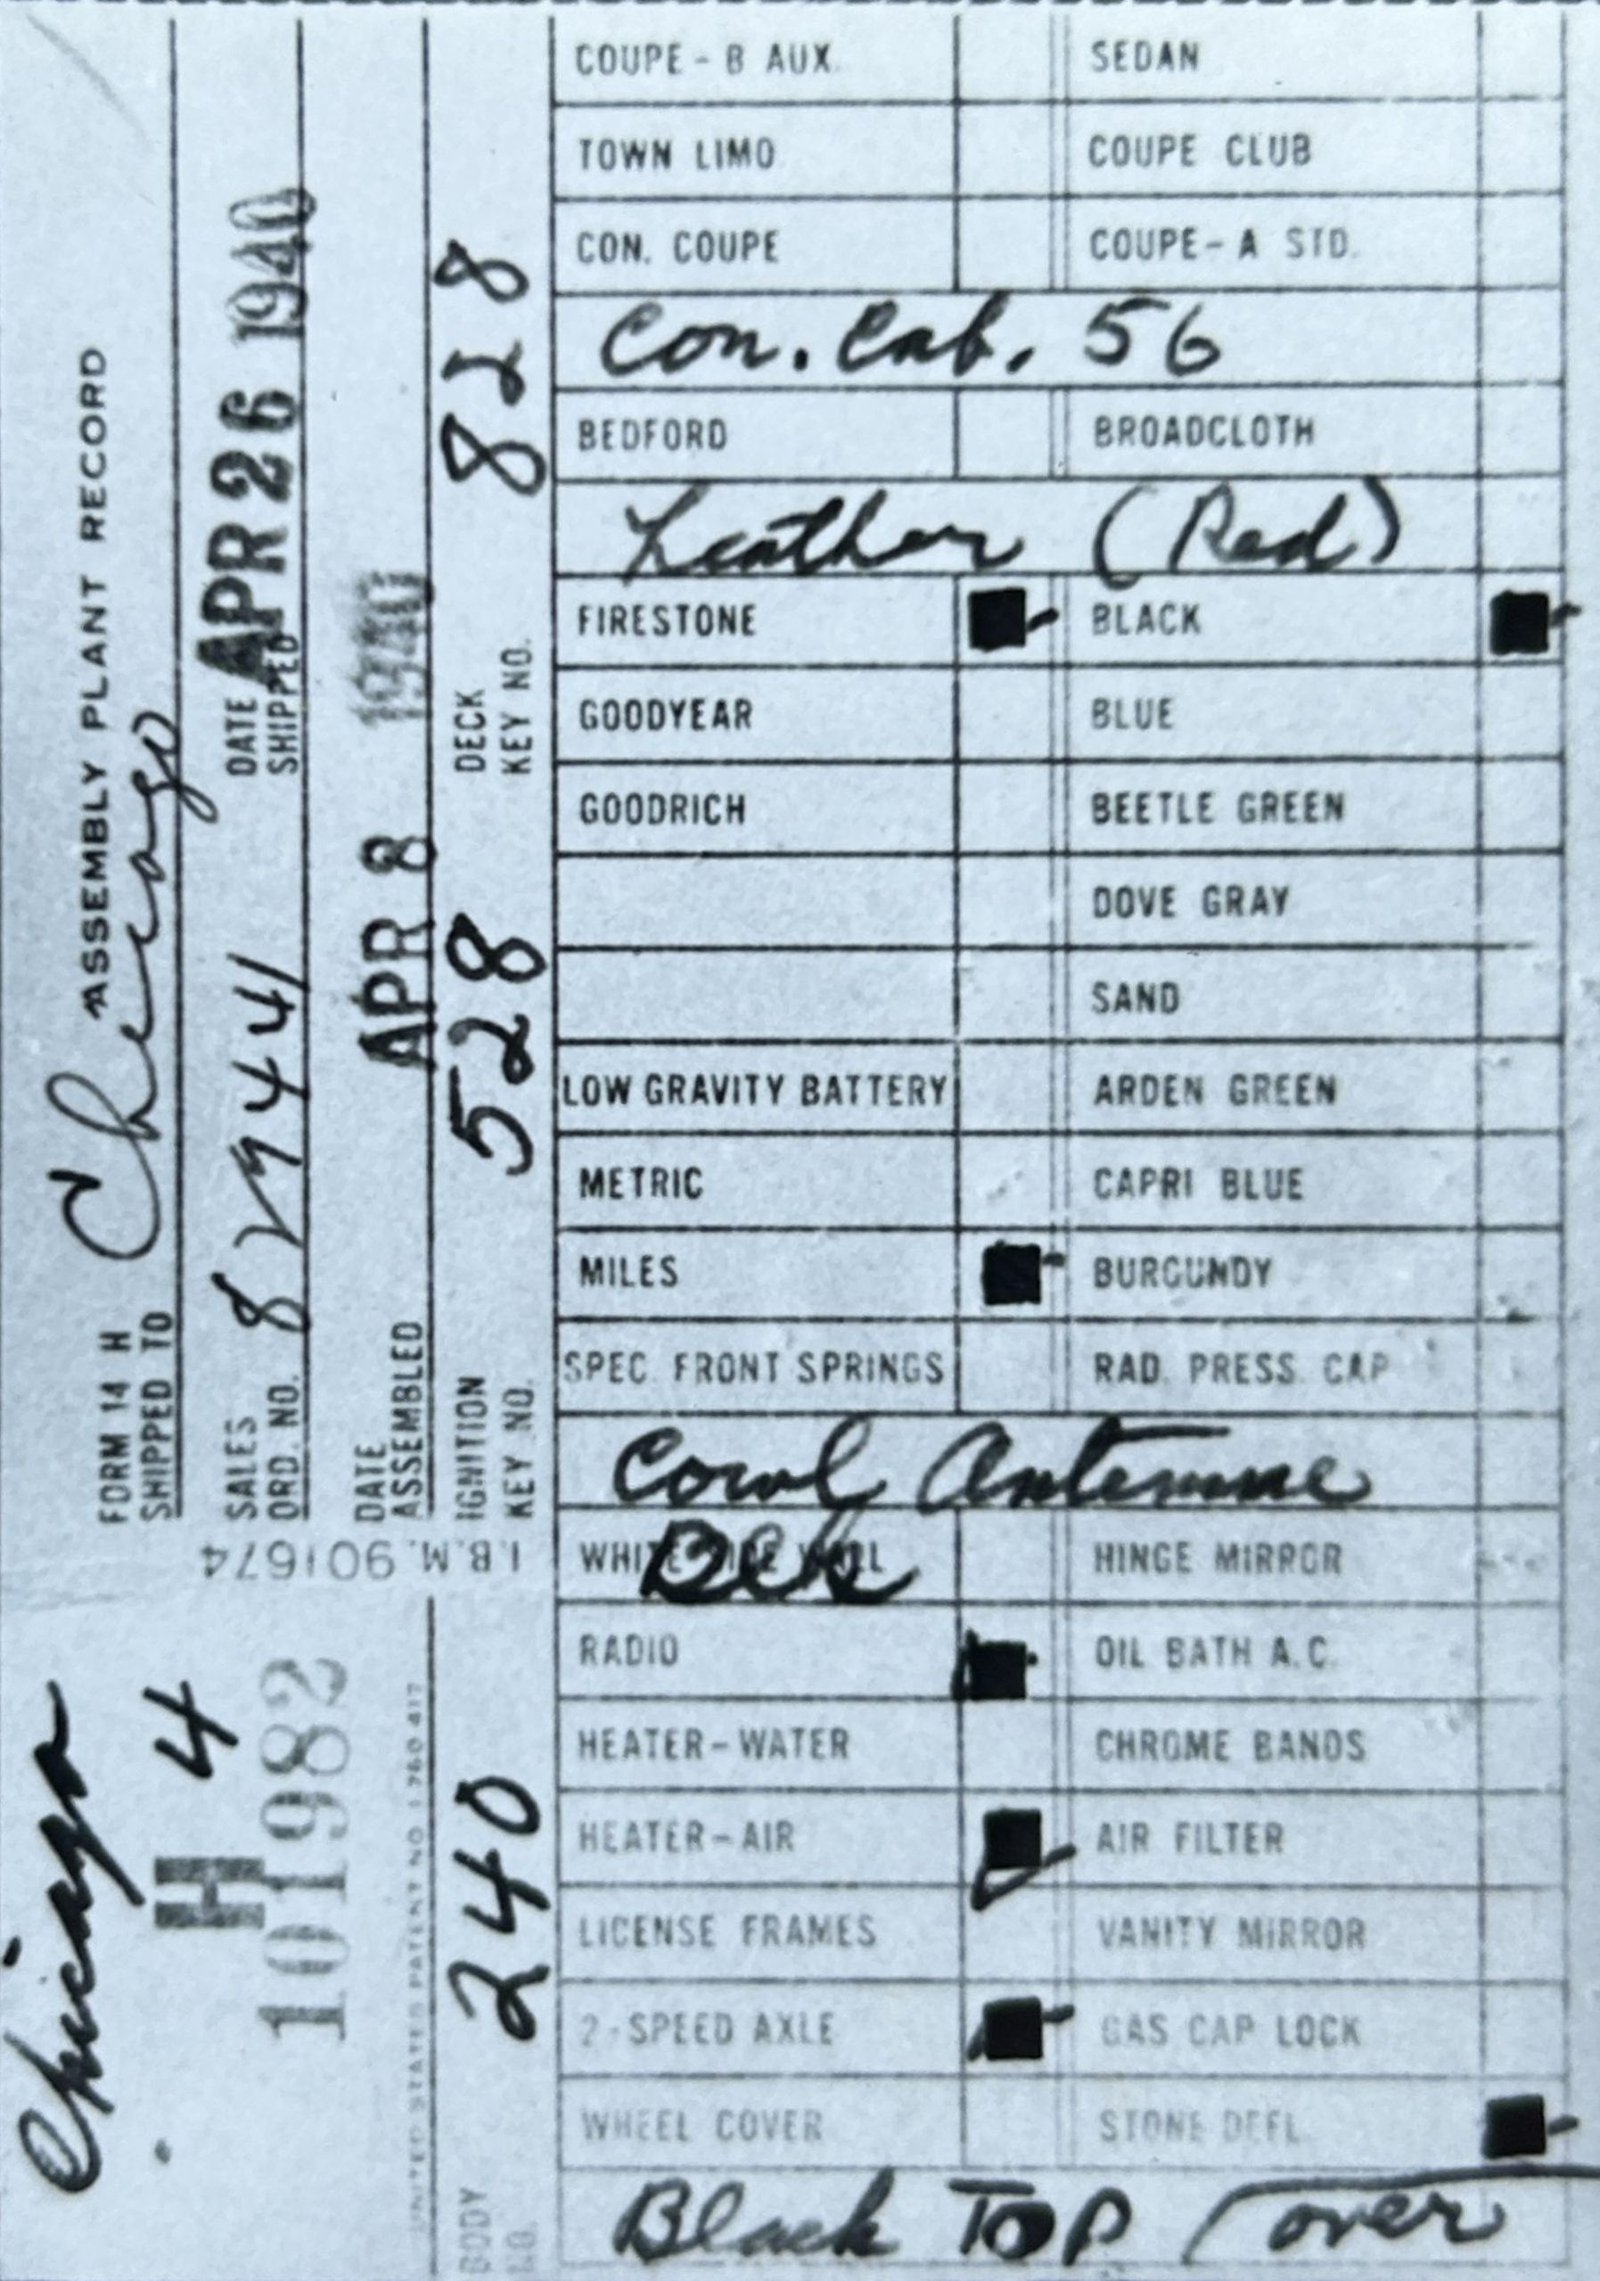 ASSEMBLY PLANT RECORD
FORM 14 H
SHIPPED TO Chicago
SALES ORD. NO. 8
DATE SHIPPED APR 26 1940
DATE ASSEMBLED APR 8 1940
IGNITION KEY NO. 528
DECK KEY NO. 828
I.B.M. 901674
Chicago
4
H
101982
UNITED STATES PATENT NO. 1,760,417
BODY NO. 240
COUPE - B AUX. SEDAN
TOWN LIMO COUPE CLUB
CON. COUPE COUPE - A STD.
Con. Cab. 56
BEDFORD BROADCLOTH
Leather (Red)
FIRESTONE BLACK
GOODYEAR BLUE
GOODRICH BEETLE GREEN
DOVE GRAY
SAND
LOW GRAVITY BATTERY ARDEN GREEN
METRIC CAPRI BLUE
MILES BURGUNDY
SPEC. FRONT SPRINGS RAD. PRESS. CAP
Cowl Antennae
WHITE WALL HINGE MIRROR
RADIO OIL BATH A.C.
HEATER - WATER CHROME BANDS
HEATER - AIR AIR FILTER
LICENSE FRAMES VANITY MIRROR
2-SPEED AXLE GAS CAP LOCK
WHEEL COVER STONE DEFL.
Black Top (over